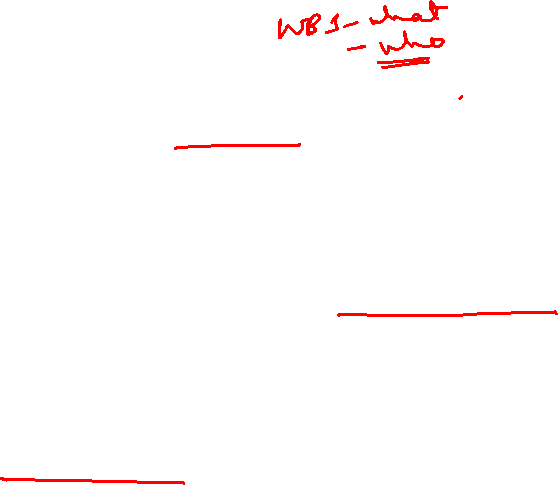 WBS - what
- who